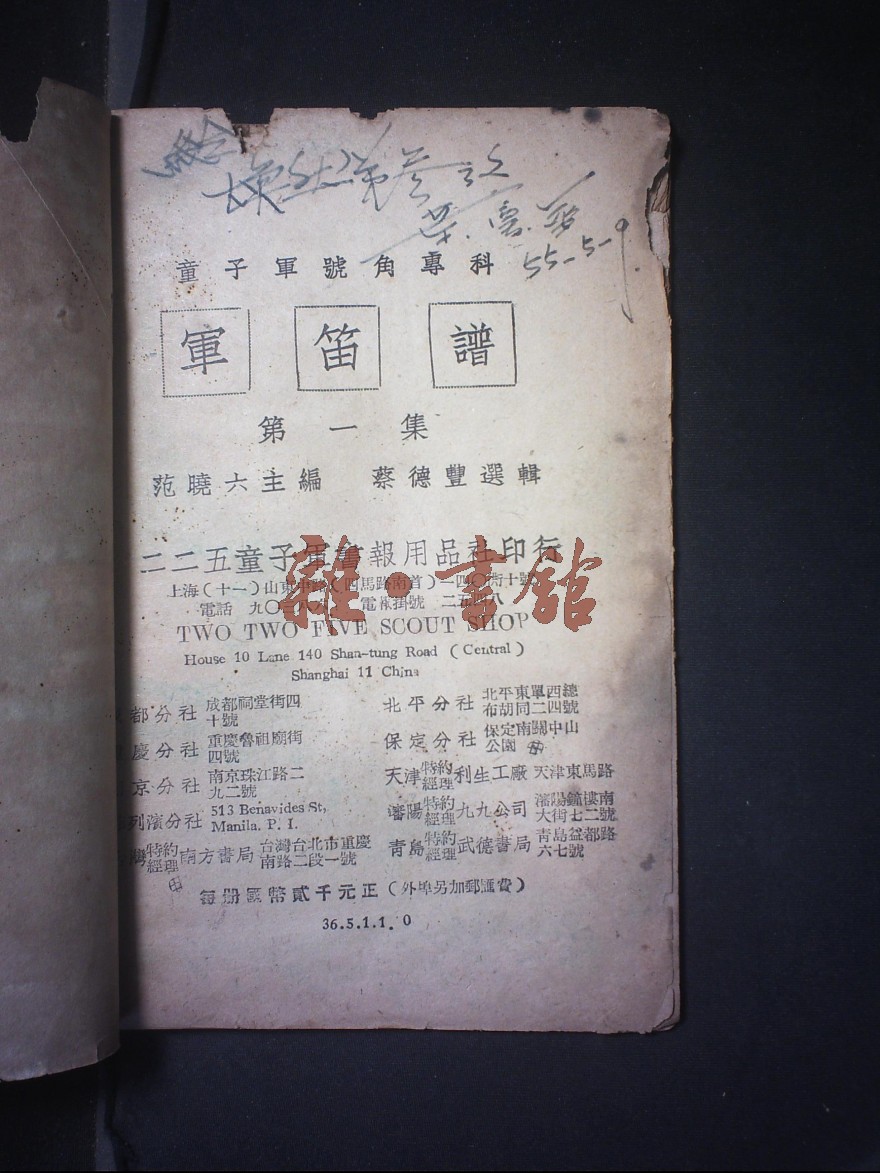 55-5-9
童子軍號角專科
軍笛譜
第一集
范曉六主編 蔡德豐選輯
二二五童子軍書報用品社印行
上海(十一)山東中路(四馬路南首)一四〇衖十號
電話 九〇三 電報掛號 二
TWO TWO FIVE SCOUT SHOP
House 10 Lane 140 Shan-tung Road (Central)
Shanghai 11 China
都分社 成都祠堂街四十號
慶分社 重慶魯祖廟街四號
京分社 南京珠江路二九二號
列濱分社 513 Benavides St, Manila. P. I.
灣特約經理南方書局 台灣台北市重慶南路二段一號
北平分社 北平東單西總布胡同二四號
保定分社 保定南關中山公園
天津特約經理利生工廠 天津東馬路
瀋陽特約經理九九公司 瀋陽鐘樓南大街七二號
青島特約經理武德書局 青島益都路六七號
每册國幣貳千元正(外埠另加郵匯費)
36.5.1.1.0
雜·書館